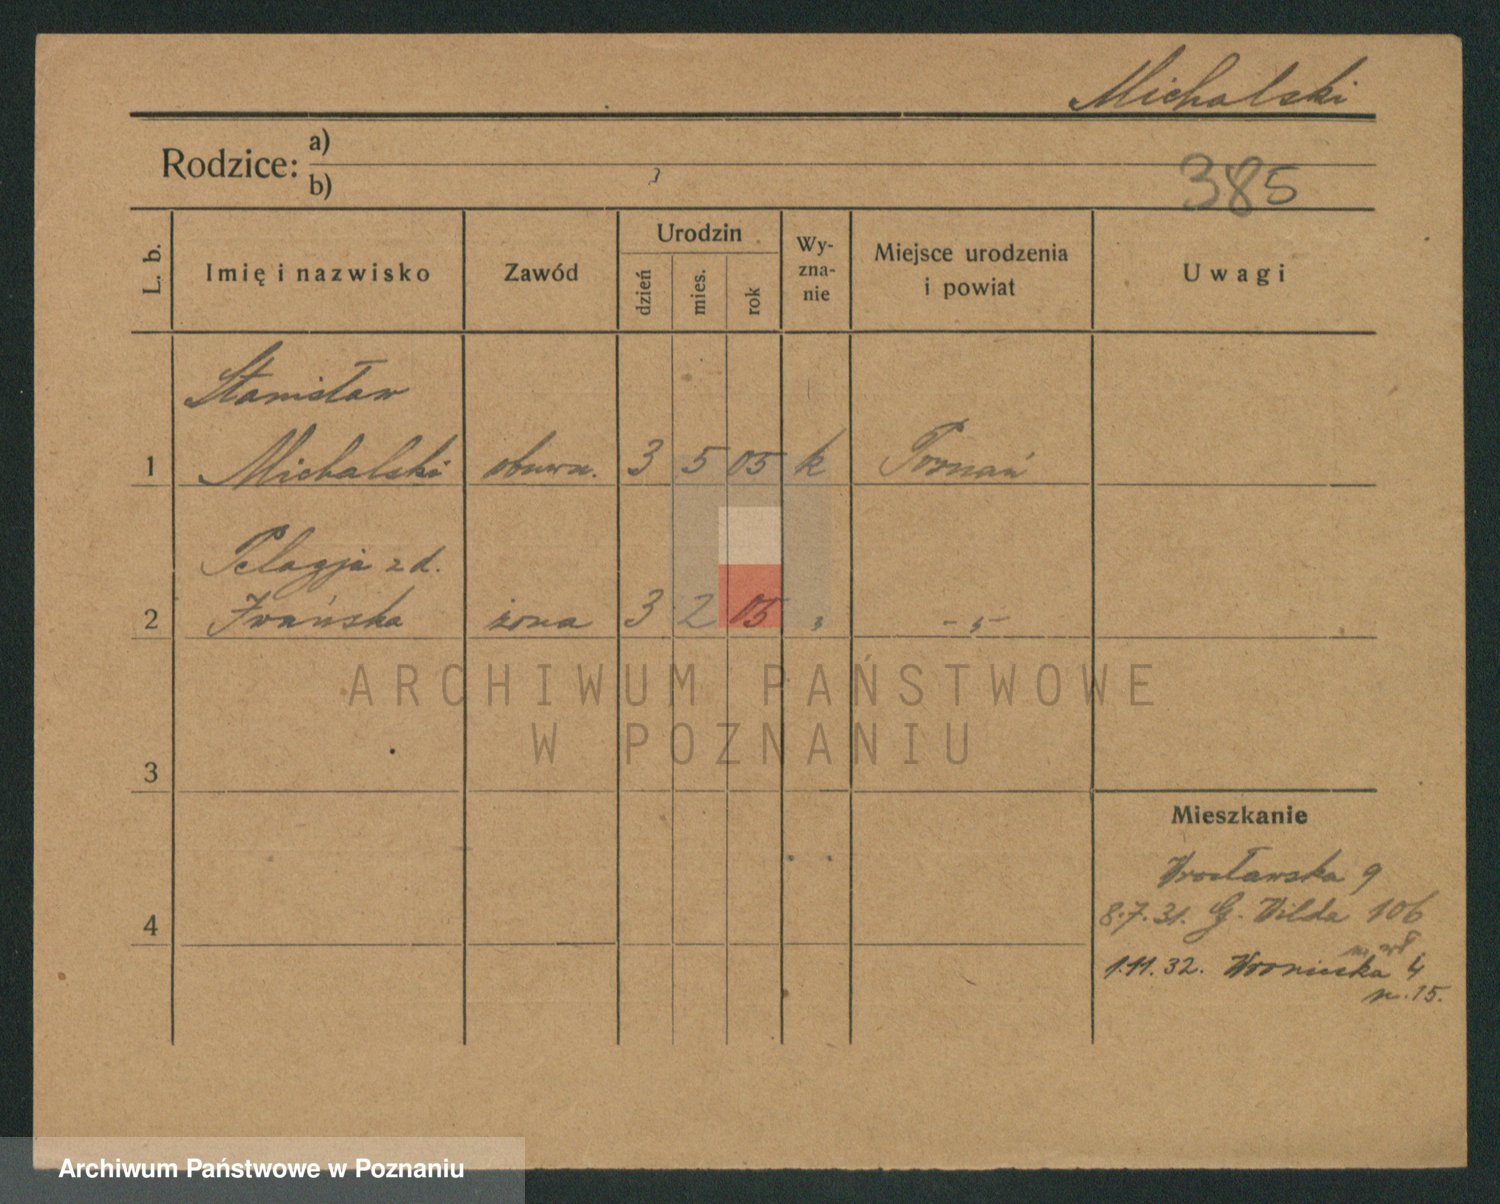 Michalski
Rodzice: a)
b)
385
L. b.
Imię i nazwisko
Zawód
Urodzin
dzień
mies.
rok
Wy-
zna-
nie
Miejsce urodzenia
i powiat
Uwagi
Stanisław
1 Michalski obuwn. 3 5 05 k Poznań
Pelagja z d.
2 Iwańska żona 3 2 05 " -"-
ARCHIWUM PAŃSTWOWE
W POZNANIU
3
Mieszkanie
Wrocławska 9
8.7.31. G. Wilda 106
4
1.11.32. Wroniecka 4
m. 15.
Archiwum Państwowe w Poznaniu